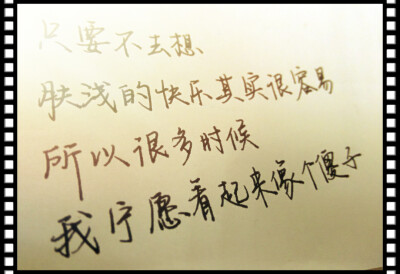 只要不去想、
肤浅的快乐其实很容易
所以很多时候
我宁愿看起来像个傻子